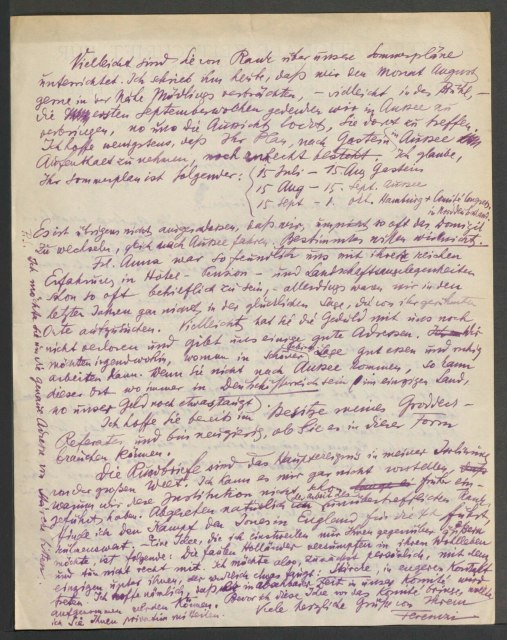 Vielleicht sind Sie von Rank über unsere Sommerpläne
unterrichtet. Ich schrieb ihm heute, daß wir den Monat August
gerne in der Nähe Mödlings verbrächten, – vielleicht in der Brühl, –
die ersten Septemberwochen gedenken wir in Aussee zu
verbringen, wo uns die Aussicht lockt, Sie dort zu treffen.
Ich hoffe wenigstens, daß Ihr Plan, nach Gastein in Aussee
Aufenthalt zu nehmen, noch aufrecht besteht. Ich glaube,
Ihr Sommerplan ist folgender: 15 Juli – 15 Aug Gastein
15 Aug – 15. Sept. Aussee
15 Sept – 1. Okt. Hamburg + Comité Congress
in Norddeutschland.
Es ist übrigens nicht ausgeschlossen, daß wir, um nicht so oft das Domizil
zu wechseln, gleich nach Aussee fahren. Bestimmtes wissen wir noch nicht.
Frl. Anna war so freundlich uns mit ihren reichen
Erfahrungen in Hotel- Pension- und Landschaftsangelegenheiten
schon so oft behilflich zu sein, – allerdings waren wir in den
letzten Jahren gar nicht in der glücklichen Lage, die von ihr genannten
Orte aufzusuchen. Vielleicht hat sie die Geduld mit uns noch
nicht verloren und gibt uns einige gute Adressen. Wir
möchten irgendwohin, wo man in schöner Lage gut essen und ruhig
arbeiten kann. Wenn Sie nicht nach Aussee kommen, so kann
dieser Ort wo immer in Deutschösterreich sein (im einzigen Land,
wo unser Geld noch etwas taugt)
Ich hoffe Sie bereits im Besitze meines Groddeck
Referates und bin neugierig, ob Sie es in dieser Form
brauchen können.
Die Rundbriefe sind das Hauptereignis in meiner Isolierung
von der großen Welt. Ich kann es mir gar nicht vorstellen,
warum wir diese Institution nicht schon früher ein-
geführt haben. Abgesehen natürlich von
finde ich den Kampf den Jones in England für die führt
Eine Idee, die ich einstweilen nur Ihnen gegenüber äußern
möchte, ist folgende: Die faulen Holländer versumpfen in ihrem Wohlleben
und tun nicht recht mit. Ich möchte also, zunächst persönlich, mit dem
einzigen unter ihnen, der wirklich etwas taugt: Stärcke, in engeren Kontakt
treten. Ich hoffe nämlich, daß er in absehbarer Zeit in unser Komité wird
aufgenommen werden können. Bevor ich diese Idee vor das Komité bringe, wollte
ich sie Ihnen privatim mitteilen. Viele herzliche Grüße von Ihrem
Ferenczi
Ich möchte Sie um die genaue Adresse von